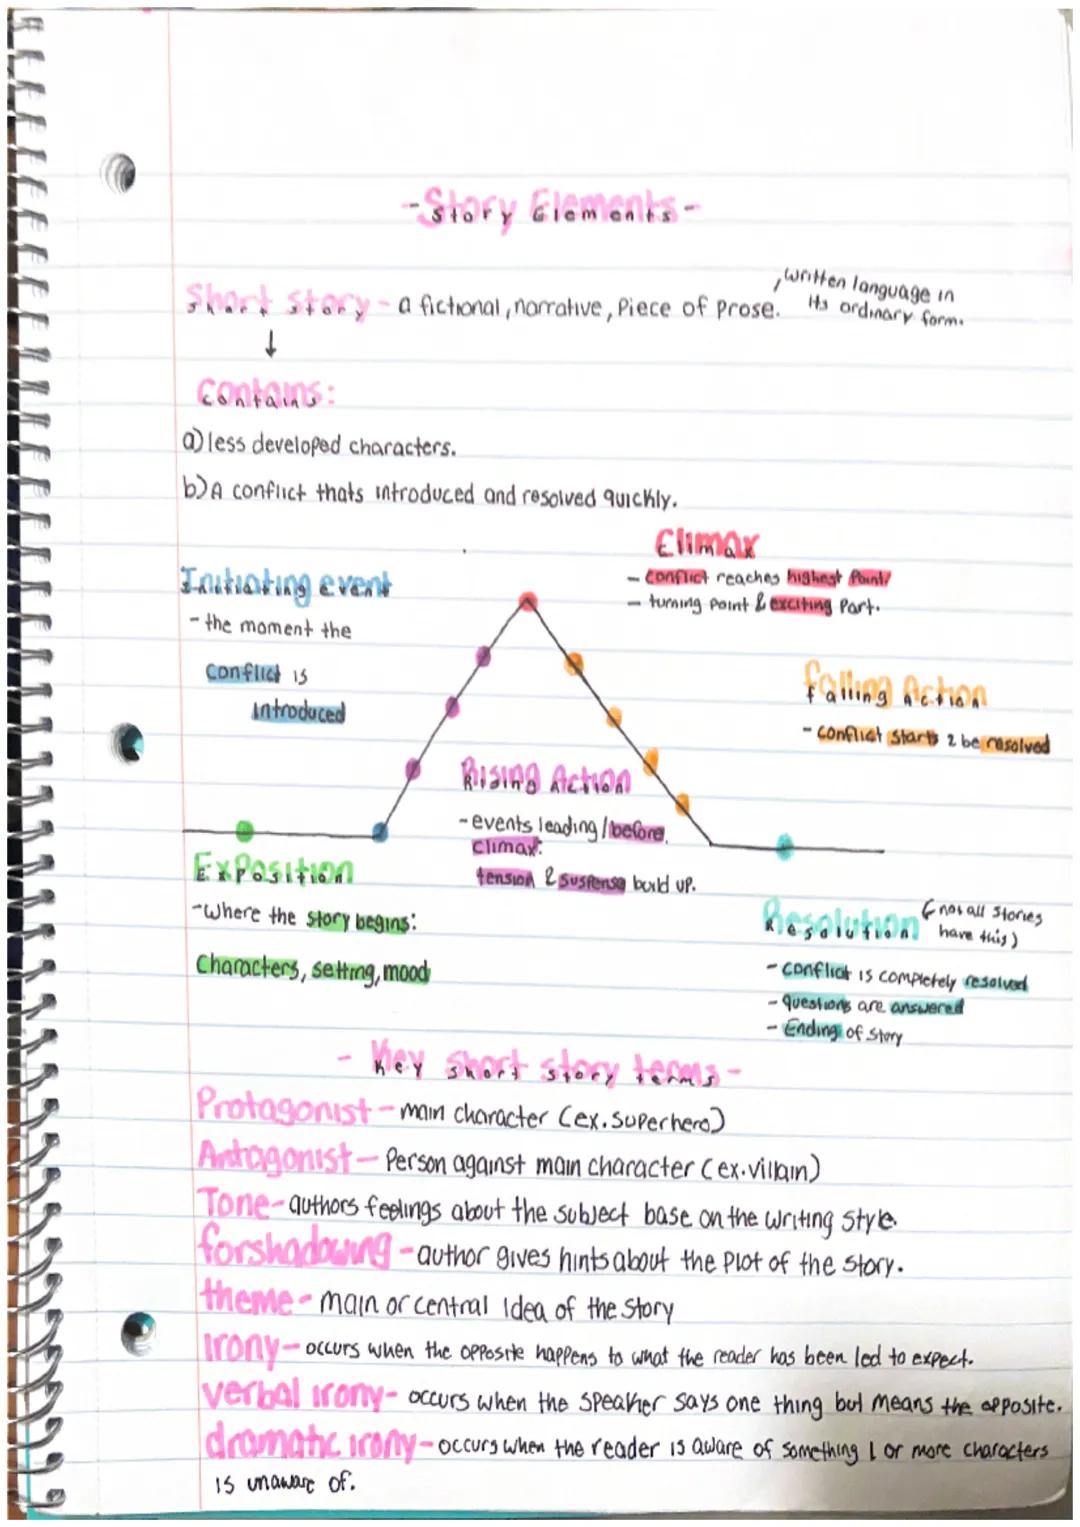 -Story Elements-
Short story - a fictional, narrative, Piece of Prose.
, written language in
its ordinary form.
↓
Contains:
a) less developed characters.
b) A conflict thats introduced and resolved quickly.
Climax
- conflict reaches highest Point/
- turning Point & exciting Part.
Initiating event
- the moment the
Conflict is
introduced
falling Action
- conflict starts 2 be resolved
Rising Action
- events leading / before
climax.
tension & suspense build up.
Exposition
- Where the story begins:
Characters, setting, mood
Resolution (not all Stories
have this)
- conflict is completely resolved
- questions are answered
- Ending of Story
- Key short story terms -
Protagonist - main character (ex. Superhero)
Antagonist - Person against main character (ex. villain)
Tone - authors feelings about the subject base on the writing style.
forshadowing - author gives hints about the Plot of the story.
theme - main or central Idea of the Story
Irony - occurs when the opposite happens to what the reader has been led to expect.
verbal irony - occurs when the speaker says one thing but means the opposite.
dramatic irony - occurs when the reader is aware of something 1 or more characters
is unaware of.